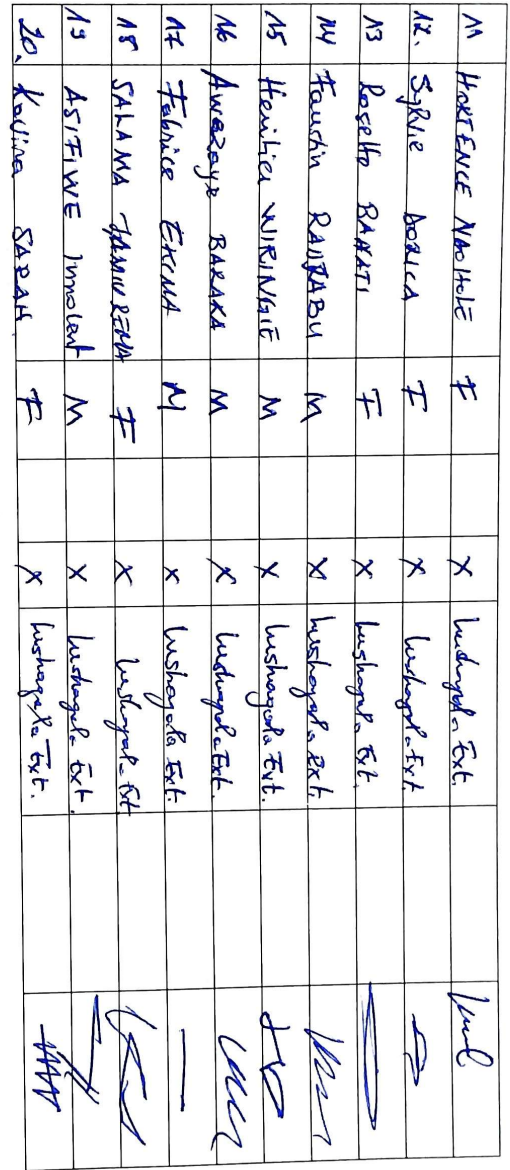 11 HORTENCE NDOHOLE F X Lushagala Ext.
12. Sylvie DORICA F X Lushagala Ext.
13 Rosette BAHATI F X Lushagala Ext.
14 Faustin RAJABU M X Lushagala Ext.
15 WIRINGIE M X Lushagala Ext.
16 Awezaye BARAKA M X Lushagala Ext.
17 Fabrice M X Lushagala Ext.
18 SALAMA F X Lushagala Ext
19 ASIFIWE Innocent M X Lushagala Ext.
20. Kavira SARAH F X Lushagala Ext.